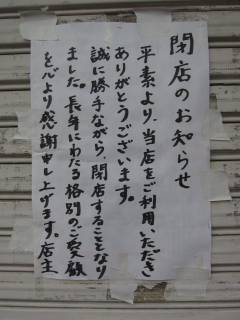 閉店のお知らせ
平素より、当店をご利用いただき
ありがとうございます。
誠に勝手ながら、閉店することとなり
ました。長年にわたる格別のご愛顧
を心より感謝申し上げます。店主